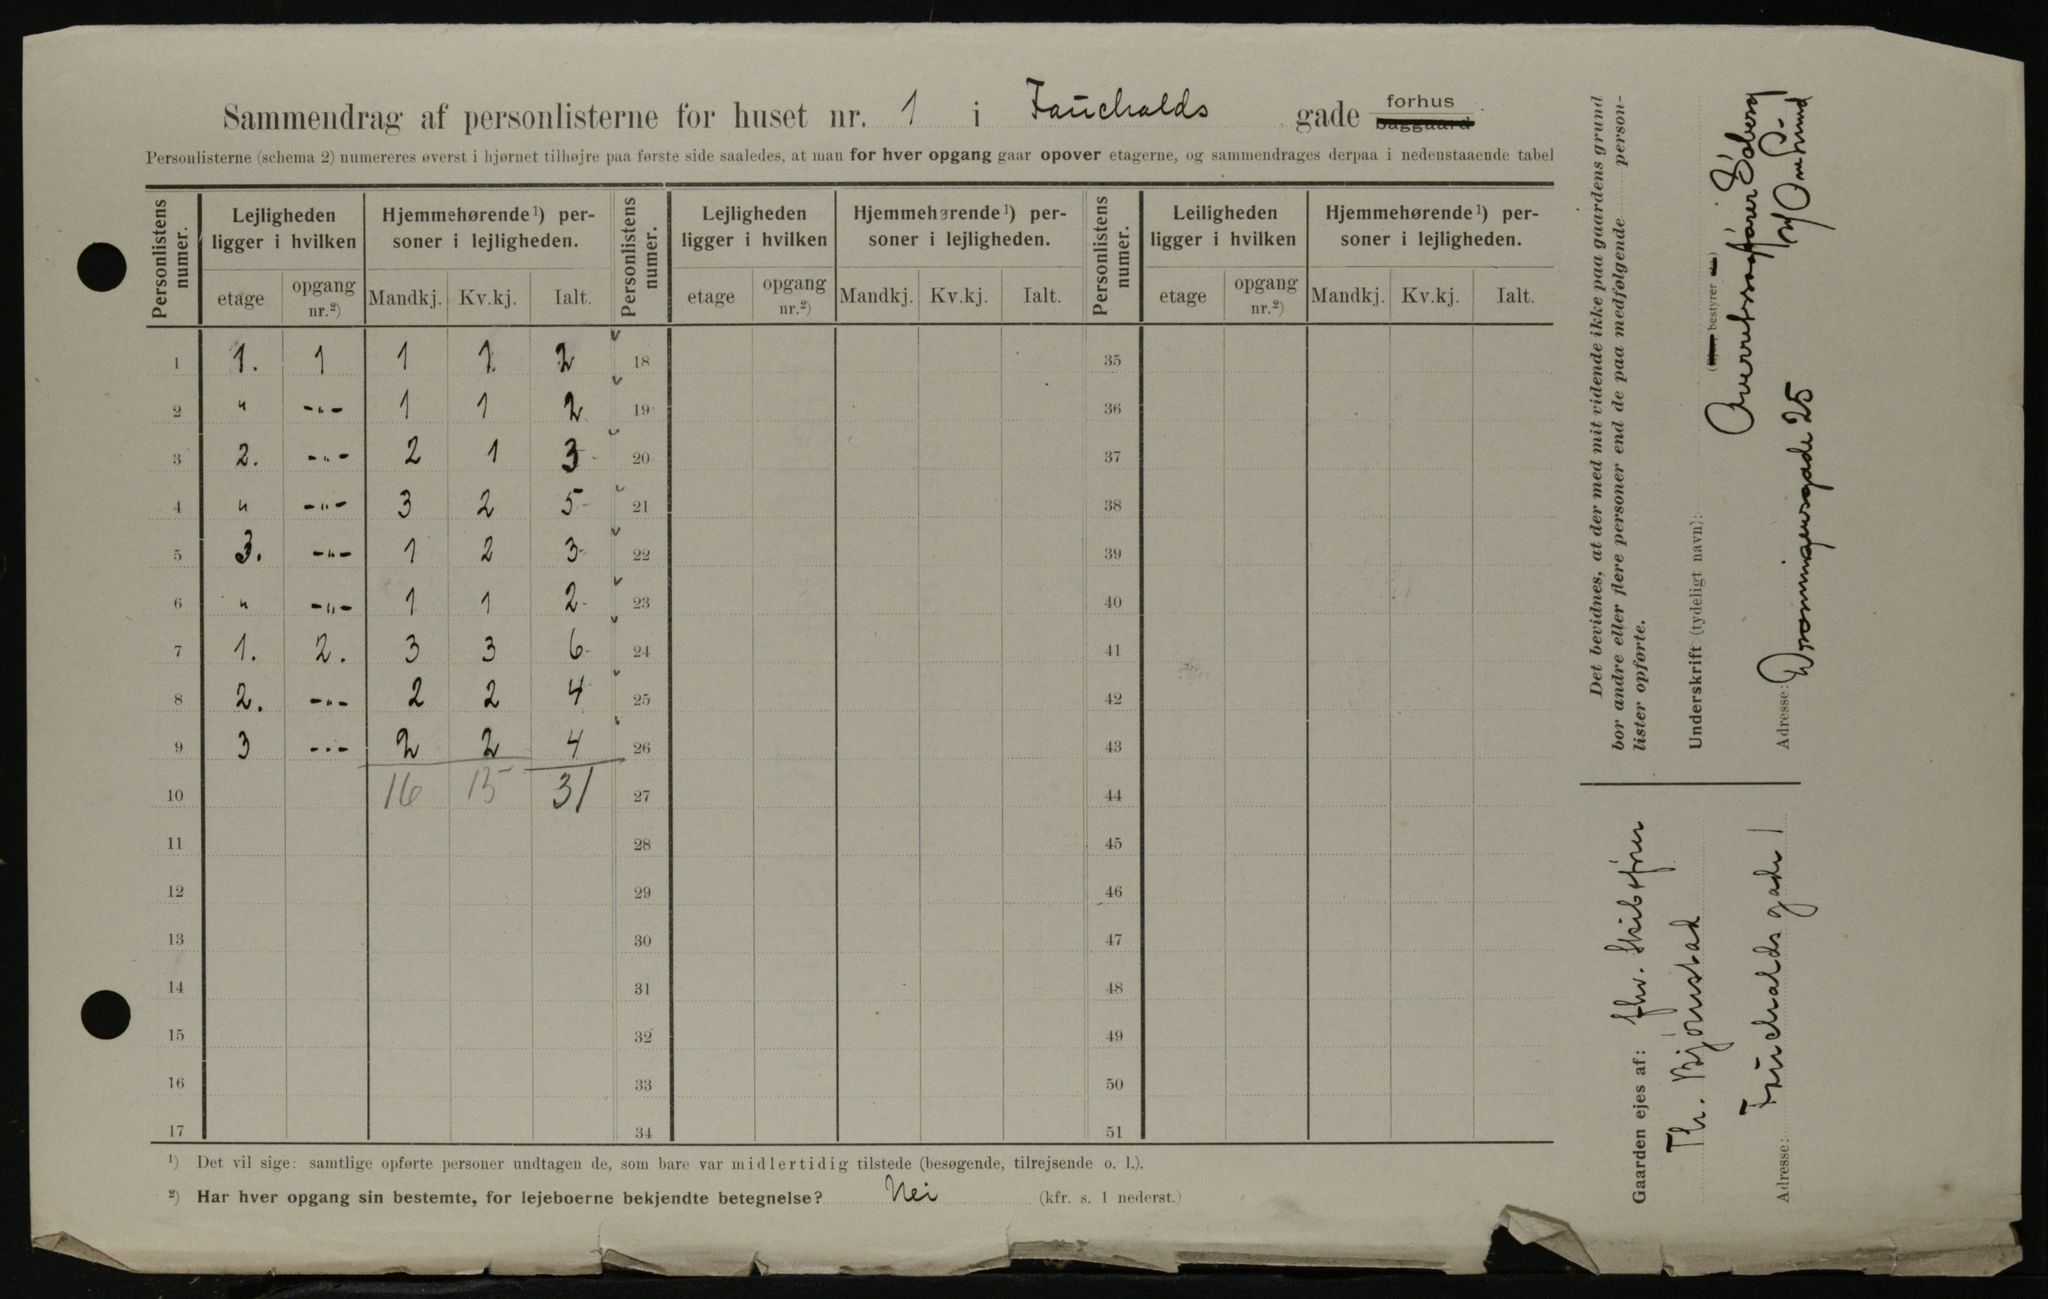 Sammendrag af personlisterne for huset nr. 1 i Fauchalds gade forhus baggaard
Personlisterne (schema 2) numereres øverst i hjørnet tilhøjre paa første side saaledes, at man for hver opgang gaar opover etagerne, og sammendrages derpaa i nedenstaaende tabel
Personlistens numer. Lejligheden ligger i hvilken Hjemmehørende¹) personer i lejligheden. Personlistens numer. Lejligheden ligger i hvilken Hjemmehørende¹) personer i lejligheden. Personlistens numer. Leiligheden ligger i hvilken Hjemmehørende¹) personer i lejligheden.
etage opgang nr.²) Mandkj. Kv.kj. Ialt. etage opgang nr.²) Mandkj. Kv.kj. Ialt. etage opgang nr.²) Mandkj. Kv.kj. Ialt.
1 1. 1 1 1 2 18 35
2 " -"- 1 1 2 19 36
3 2. -"- 2 1 3 20 37
4 " -"- 3 2 5 21 38
5 3. -"- 1 2 3 22 39
6 " -"- 1 1 2 23 40
7 1. 2. 3 3 6 24 41
8 2. -"- 2 2 4 25 42
9 3 -"- 2 2 4 26 43
10 16 15 31 27 44
11 28 45
12 29 46
13 30 47
14 31 48
15 32 49
16 33 50
17 34 51
¹) Det vil sige: samtlige opførte personer undtagen de, som bare var midlertidig tilstede (besøgende, tilrejsende o. l.).
²) Har hver opgang sin bestemte, for lejeboerne bekjendte betegnelse? Nei (kfr. s. 1 nederst.)
Det bevidnes, at der med mit vidende ikke paa gaardens grund
bor andre eller flere personer end de paa medfølgende person-
lister opførte.
Underskrift (tydeligt navn):
bestyrer
Overretssagfører Solberg
Adresse: Dronningensgade 25
Gaarden ejes af: fhv. Skibsfører
Th. Bjørnstad
Adresse: Fauchalds gade 1